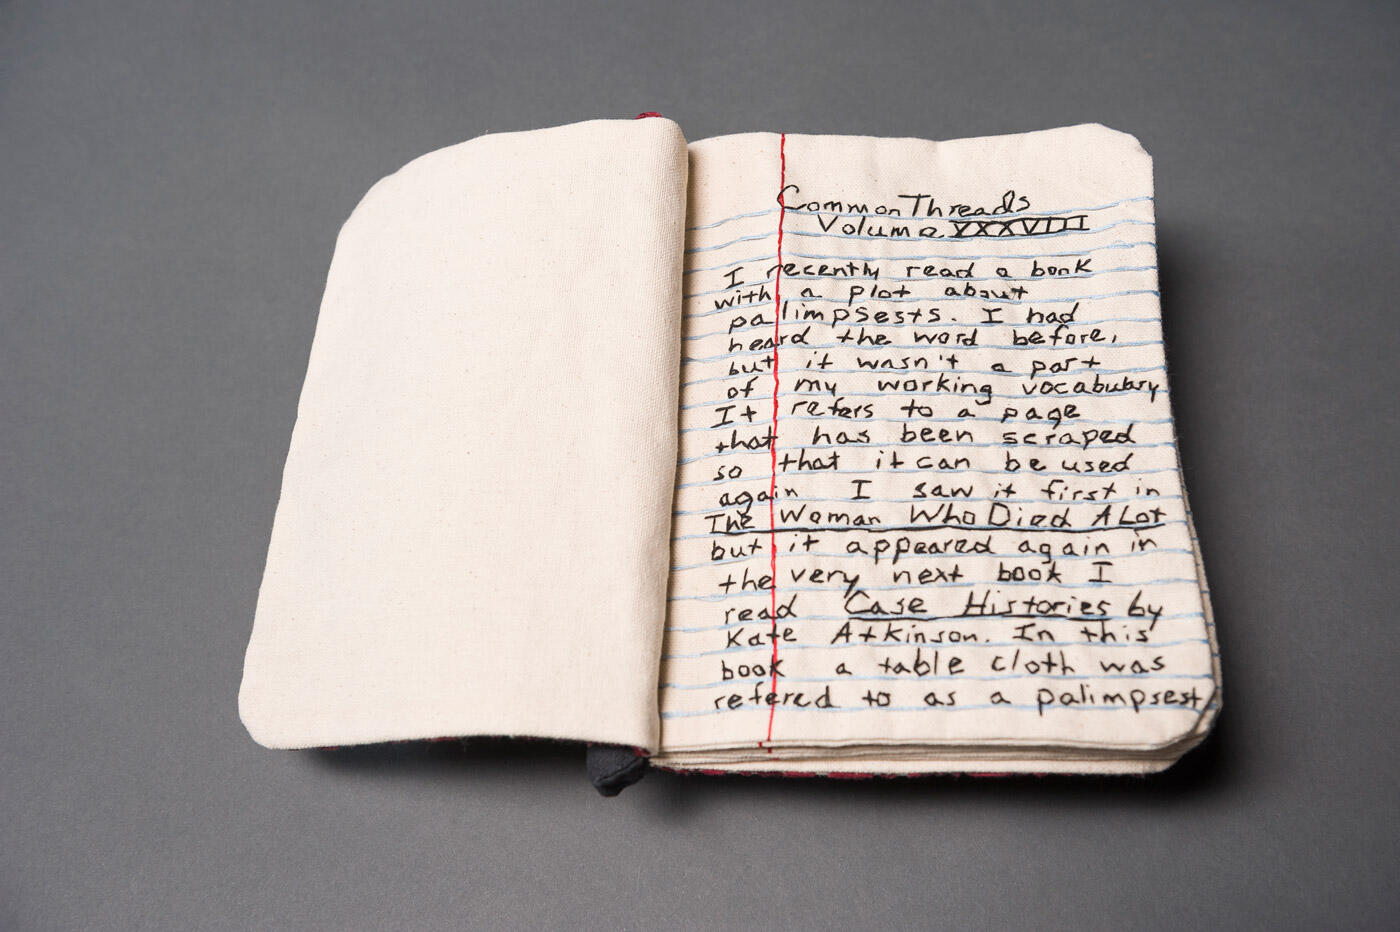 Common Threads
Volume XXXVIII
I recently read a book
with a plot about
palimpsests. I had
heard the word before,
but it wasn't a part
of my working vocabulary
It refers to a page
that has been scraped
so that it can be used
again I saw it first in
The Woman Who Died A Lot
but it appeared again in
the very next book I
read Case Histories by
Kate Atkinson. In this
book a table cloth was
refered to as a palimpsest,